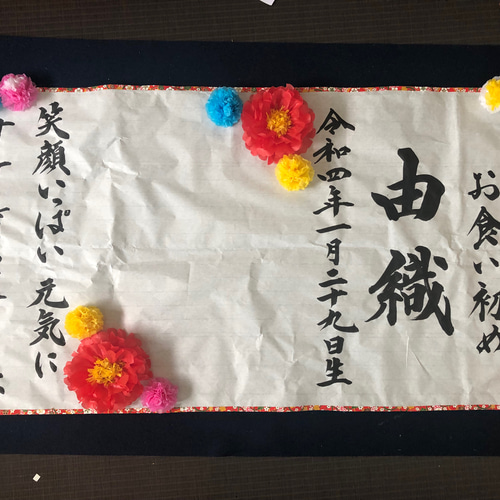 お食い初め
由織
令和四年一月二十九日生
笑顔いっぱい 元気に